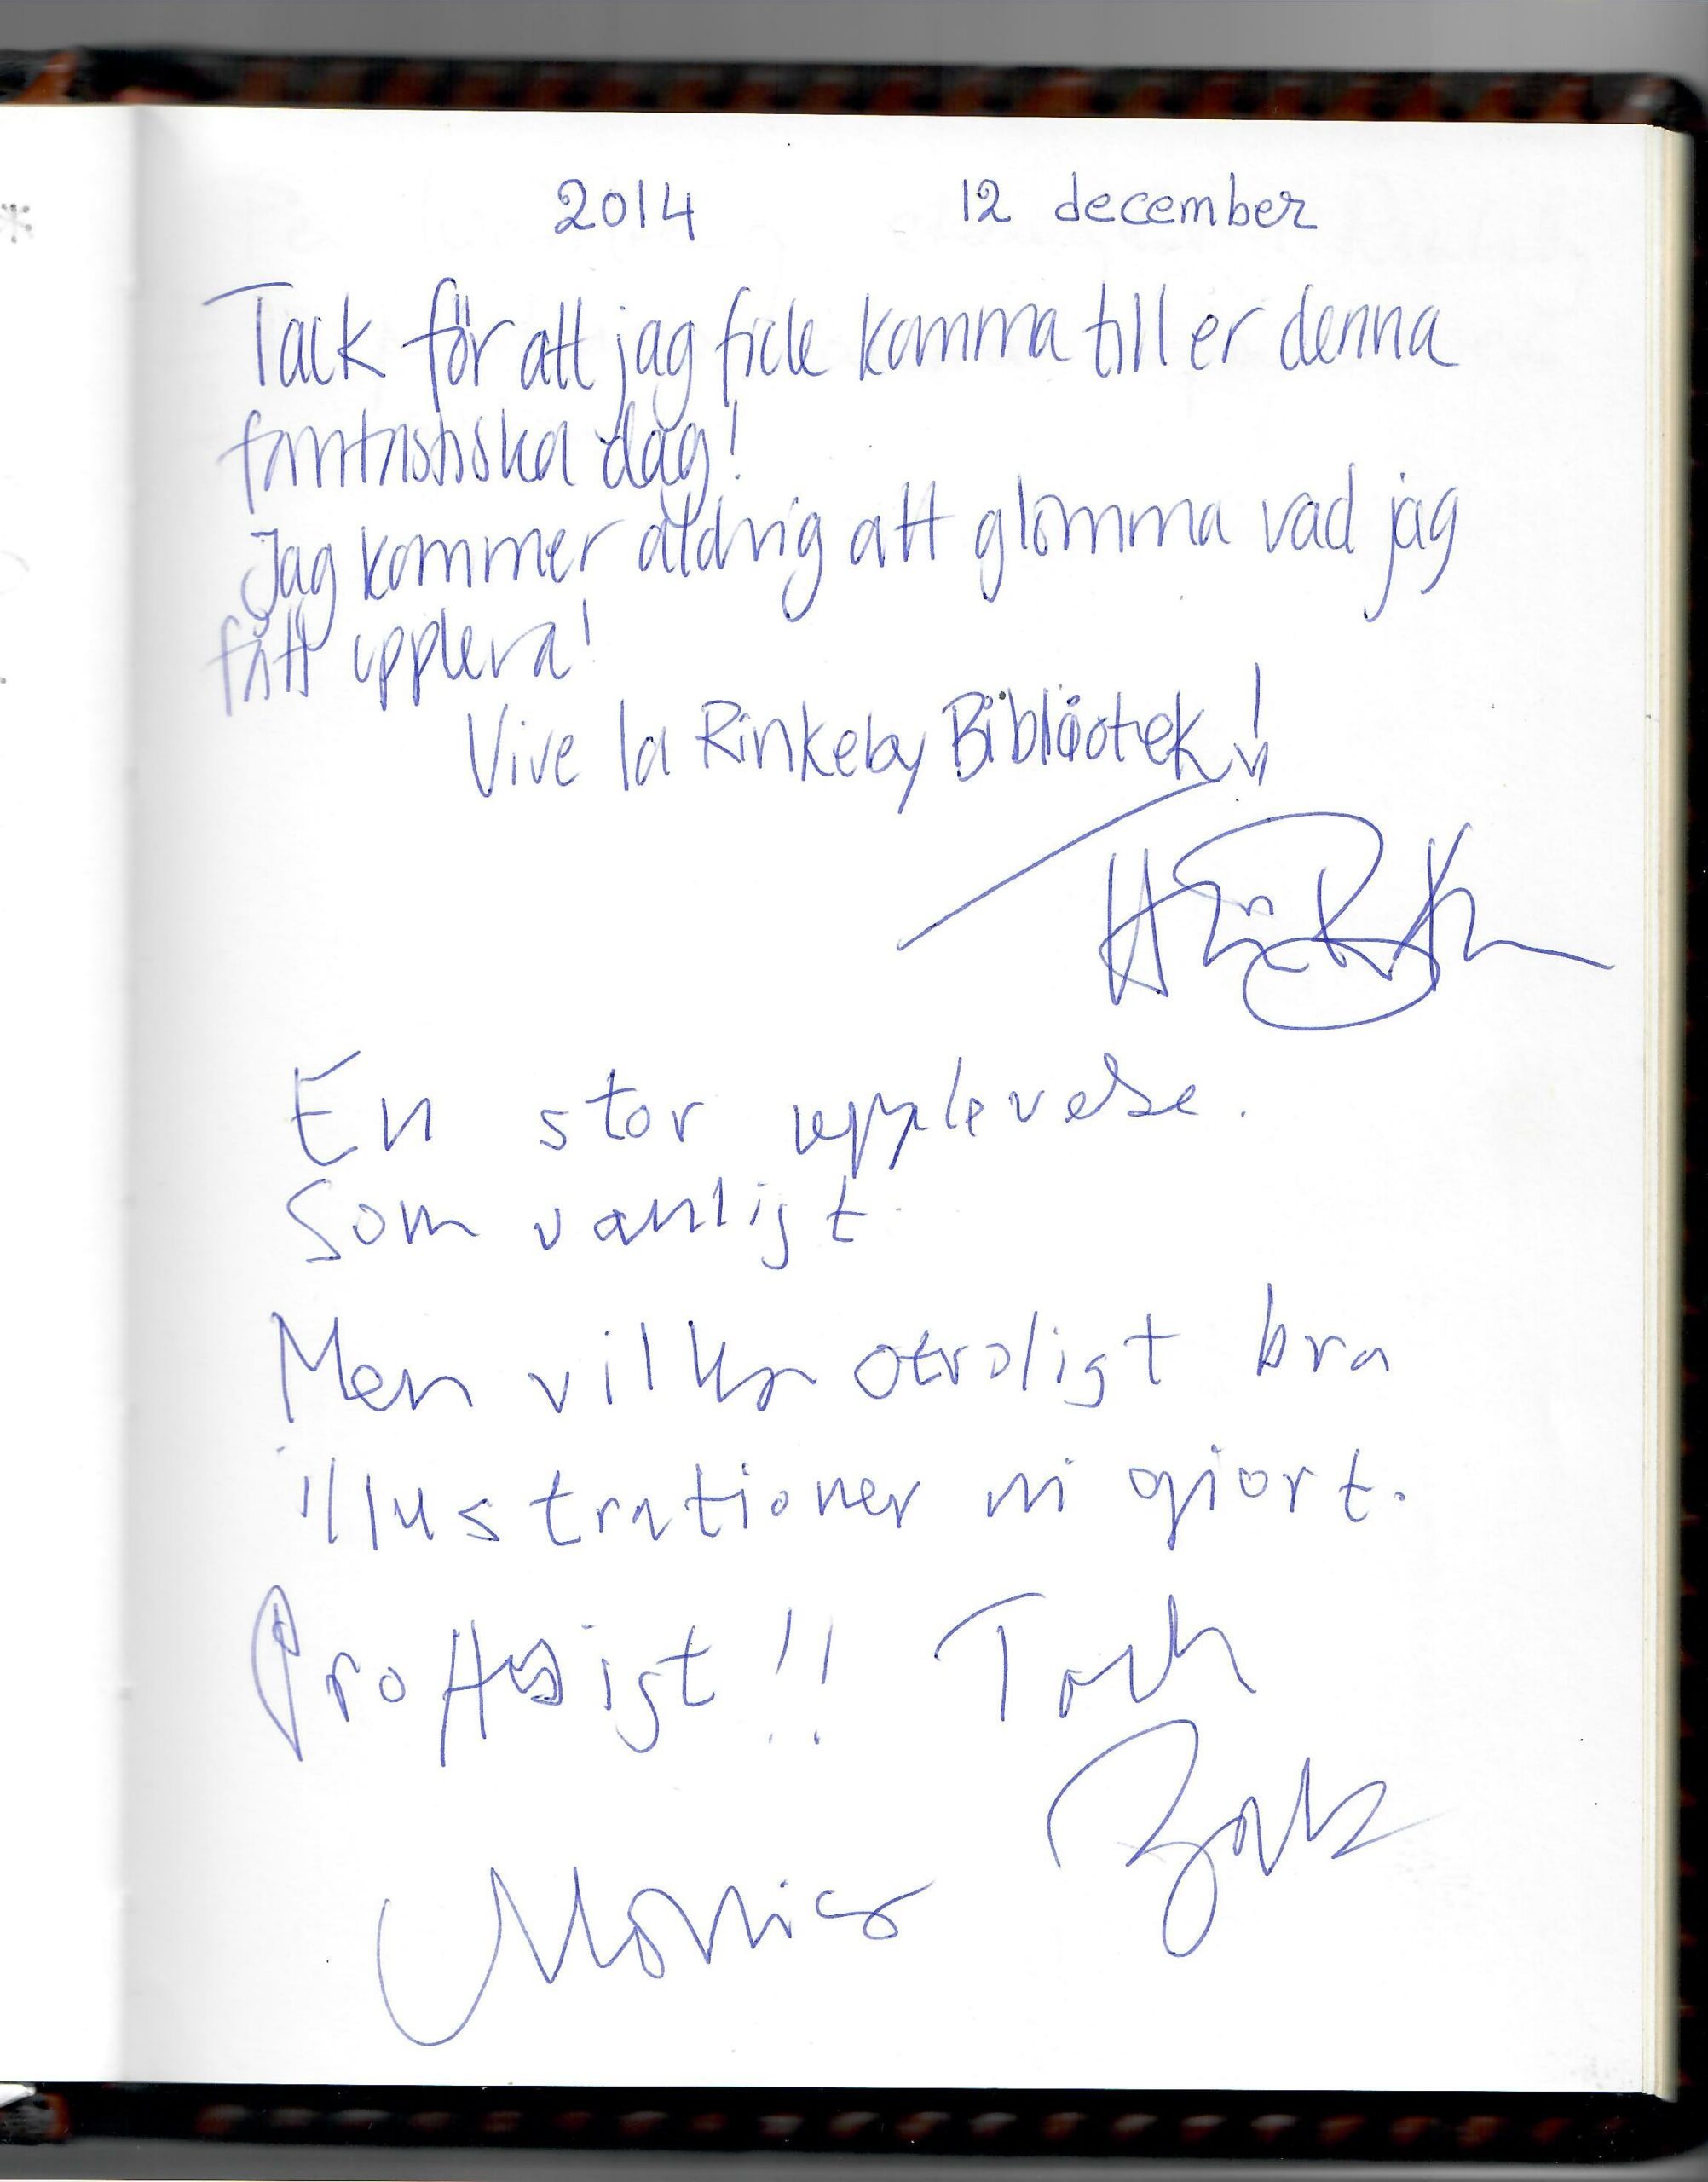 2014 12 december
Tack för att jag fick komma till er denna
fantastiska dag!
Jag kommer aldrig att glömma vad jag
fått uppleva!
Vive la Rinkeby Bibliotek!
En stor upplevelse.
Som vanligt.
Men vilka otroligt bra
illustrationer ni gjort.
Proffsigt!! Tack
Monica Zak